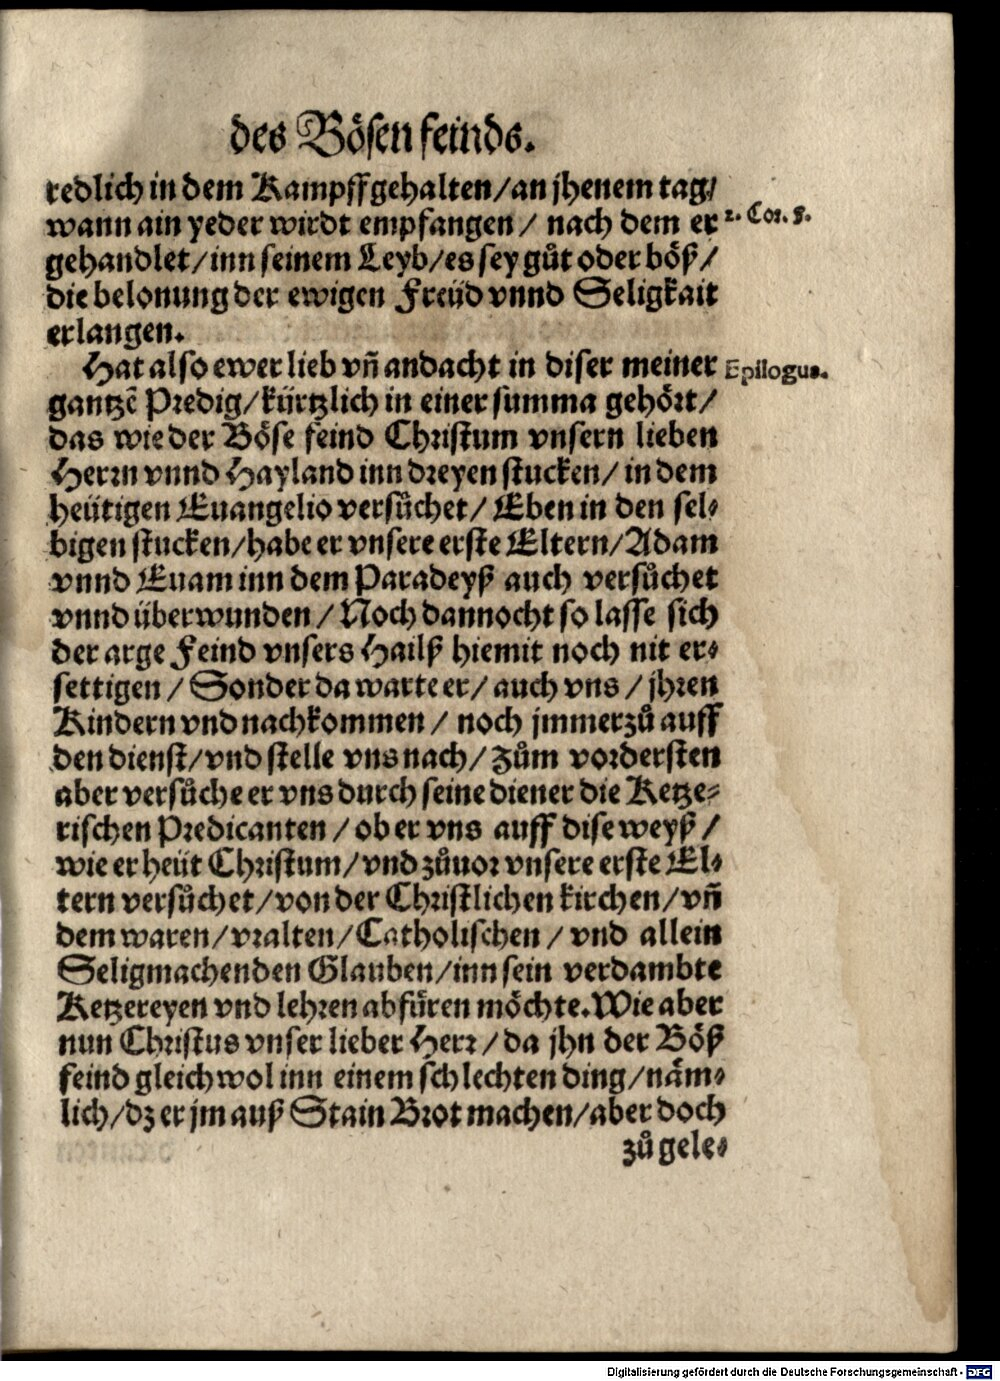 des Bösen feinds.
redlich in dem Kampff gehalten/ an jhenem tag/
wann ain yeder wirdt empfangen/ nach dem er
2. Cor. 5.
gehandlet/ inn seinem Leyb/ es sey gůt oder böß/
die belonung der ewigen Freüd vnnd Seligkait
erlangen.
Hat also ewer lieb vñ andacht in diser meiner
Epilogus.
gantzẽ Predig/ kürtzlich in einer summa gehört/
das wie der Böse feind Christum vnsern lieben
Herrn vnnd Hayland inn dreyen stucken/ in dem
heütigen Euangelio versůchet/ Eben in den sel-
bigen stucken/ habe er vnsere erste Eltern/ Adam
vnnd Euam inn dem Paradeyß auch versůchet
vnnd überwunden/ Noch dannocht so lasse sich
der arge Feind vnsers Hailß hiemit noch nit er-
settigen/ Sonder da warte er/ auch vns/ jhren
Kindern vnd nachkommen/ noch jmmerzů auff
den dienst/ vnd stelle vns nach/ zům vordersten
aber versůche er vns durch seine diener die Ketze-
rischen Predicanten/ ob er vns auff dise weyß/
wie er heüt Christum/ vnd zůuor vnsere erste El-
tern versůchet/ von der Christlichen kirchen/ vñ
dem waren/ vralten/ Catholischen/ vnd allein
Seligmachenden Glauben/ inn sein verdambte
Ketzereyen vnd lehren abfüren möchte. Wie aber
nun Christus vnser lieber Herr/ da jhn der Böß
feind gleichwol inn einem schlechten ding/ näm-
lich/ dz er jm auß Stain Brot machen/ aber doch
zů gele-
Digitalisierung gefördert durch die Deutsche Forschungsgemeinschaft - DFG